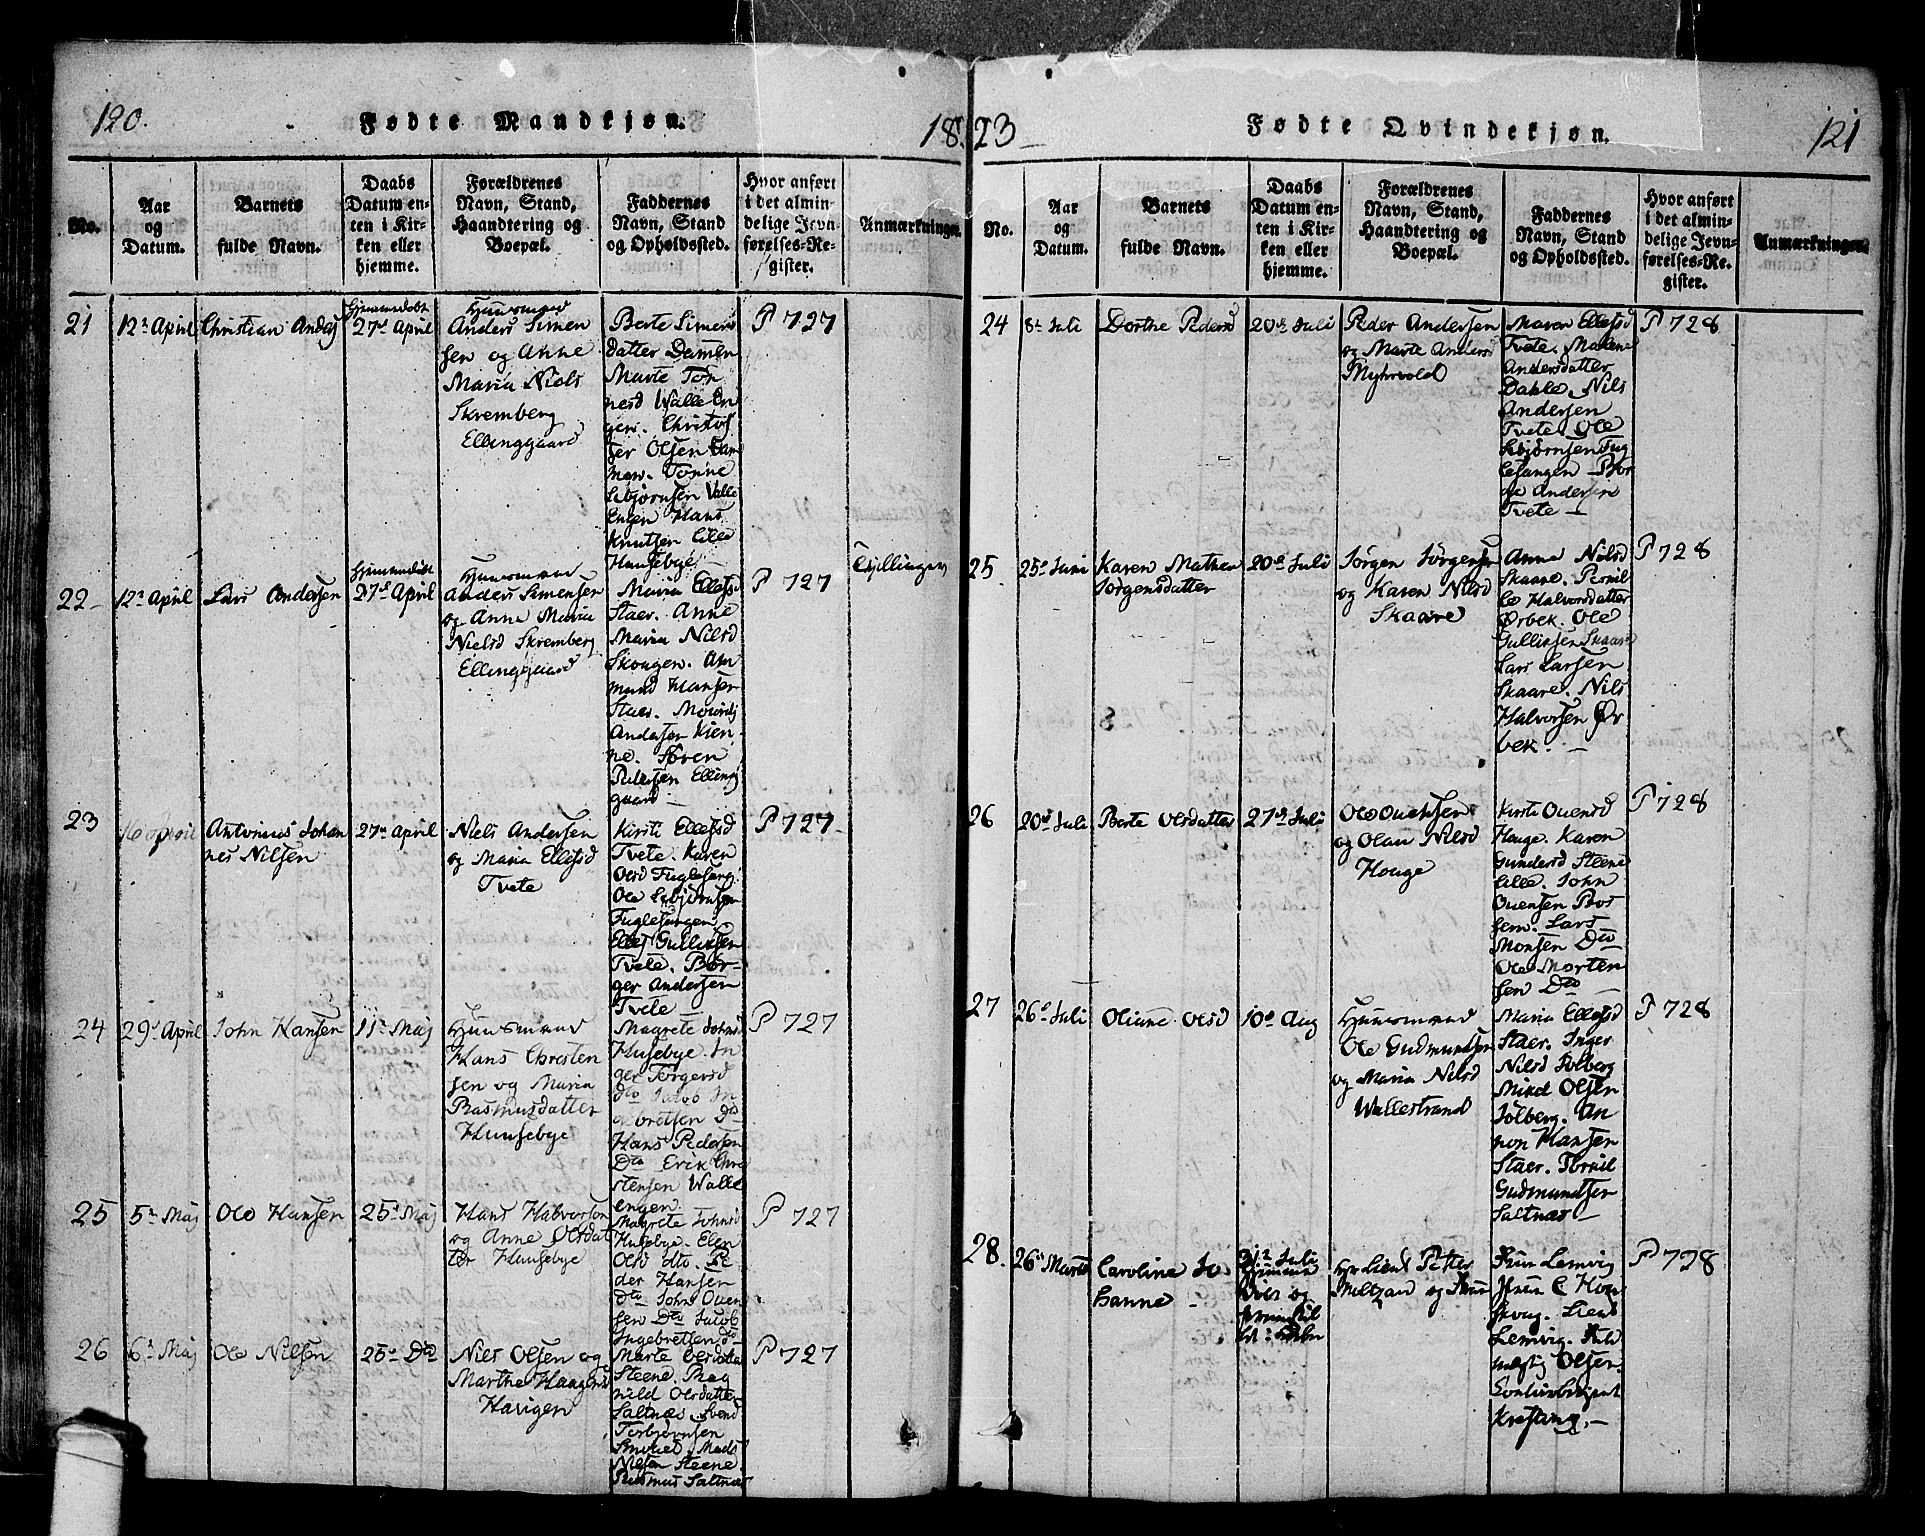 120.
Fødte Mandkjøn.
18
No.
Aar og Datum.
Barnets fulde Navn.
Daabs Datum enten i Kirken eller hjemme.
Forældrenes Navn, Stand, Haandtering og Boepæl.
Faddernes Navn, Stand og Opholdssted.
Hvor anført i det almindelige Jevnførelses-Register.
Anmærkninger.
21
12te April
Christian Anders
Hjemmedøbt
27de April
Huusmand
Anders Simen
sen og Anne
Maria Niels
Skremberg
Ellinggaard
Berte Simens
datter Damen
Marte Tor
nesd Walle En
gen. Christof
fer Olsen Dam
men. Tonne
Esbjørnsen Valle
Engen Hans
Knutsen Lille
Huusebye.
P 727
22
12te April
Lars Andersen
Hjemmedøbt
27de April
Huusmand
Anders Simensen
og Anne Maria
Nielsd Skremberg
Ellinggaard
Maria Ellefsd
Staer. Anne
Maria Nilsd
Skougen. Am
mund Hansen
Staer. Mourids
Andersen Kien
ne. Søren
Pedersen Elling
gaard
P 727
Tvillinger
23
16 April
Antonius Johan
nes Nilsen
27de April
Niels Andersen
og Maria Ellefsd
Tvete
Kirsti Ellefsd
Tvete. Karen
Olsd Fuglesang.
Ole Esbjørnsen
Fuglesangen
Ellef Gulliksen
Tvete. Bør-
ger Andersen
Tvete
P 727
24
29de April
John Hansen
11te Maj
Huusmand
Hans Christen
sen og Maria
Rasmusdatter
Huusebye
Magrete Johnsd
Husebye. In
ger Torgersd
dto Jacob In
gebretsen Do
Hans Pedersen
Dto Erik Chri
stensen Walle
engen.
P 727
25
5te Maj
Ole Hansen
25de Maj
Hans Halvorsen
og Anne Olsdat
ter Huusebye
Magrete Johnsd
Husebye. Elen
Olsd dto. Pe
der Hansen
dto John Ouen
sen Dto Jacob
Ingebretsen do
P 727
26
6te Maj
Ole Nilsen
25de Dto
Niels Olsen og
Marthe Haagens
Havigen
Marte Olsdatter
Steene. Rag
nild Olsdatter
Saltnæs. Svend
Torbjørnsen
Mads
Nilsen Steene
Rasmus Saltnæs
P 727
23
Fødte Qvindekjøn.
121
No.
Aar og Datum.
Barnets fulde Navn.
Daabs Datum enten i Kirken eller hjemme.
Forældrenes Navn, Stand, Haandtering og Boepæl.
Faddernes Navn, Stand og Opholdssted.
Hvor anført i det almindelige Jevnførelses-Register.
Anmærkninger.
24
8de Juli
Dorthe Pedersd
20de Juli
Peder Andersen
og Marte Andersd
Myhrvold
Maren Ellefsd
Tvete. Malene
Andersdatter
Dahle. Nils
Andersen
Tvete. Ole
Esbjørnsen Fug
lesangen. Bør
ge Andersen
Tvete
P 728
25
25de Juni
Karen Mathea
Jørgensdatter
20de Juli
Jørgen Jørgensen
og Karen Nilsd
Skaare
Anne Nilsd
Skaare. Pernil
le Halvorsdatter
Ørbek. Ole
Gulliksen Skaare
Lars Larsen
Skaare. Nils
Halvorsen Ør
bek.
P 728
26
20de Juli
Berte Olsdatter
27de Juli
Ole Ouensen
og Olau Nilsd
Houge
Kirste Ouensd
Houge. Karen
Gundersd Steene
Lille. John
Ouensen Bor
sem. Lars
Monsen Dto
Ole Morten
sen Dto
P 728
27
26de Juli
Oliane Olsd
10de Aug
Huusmand
Ole Gudmundsen
og Maria Nilsd
Wallestrand
Maria Ellefsd
Staer. Inger
Nilsd Solberg
Mikel Olsen
Solberg. An
non Hansen
Staer. Torkil
Gudmundsen
Saltnæs
P 728
28.
26de Marts
Caroline Jo
hanne
31te Juli
Hr Lieut Petter
Meltzau og Frue
Frue Lemvig
Frue C Hou
skoug. Lieut
Lemvig. Fuld
mægtig Olsen.
Contoirbetjent
Krefting.
P 728